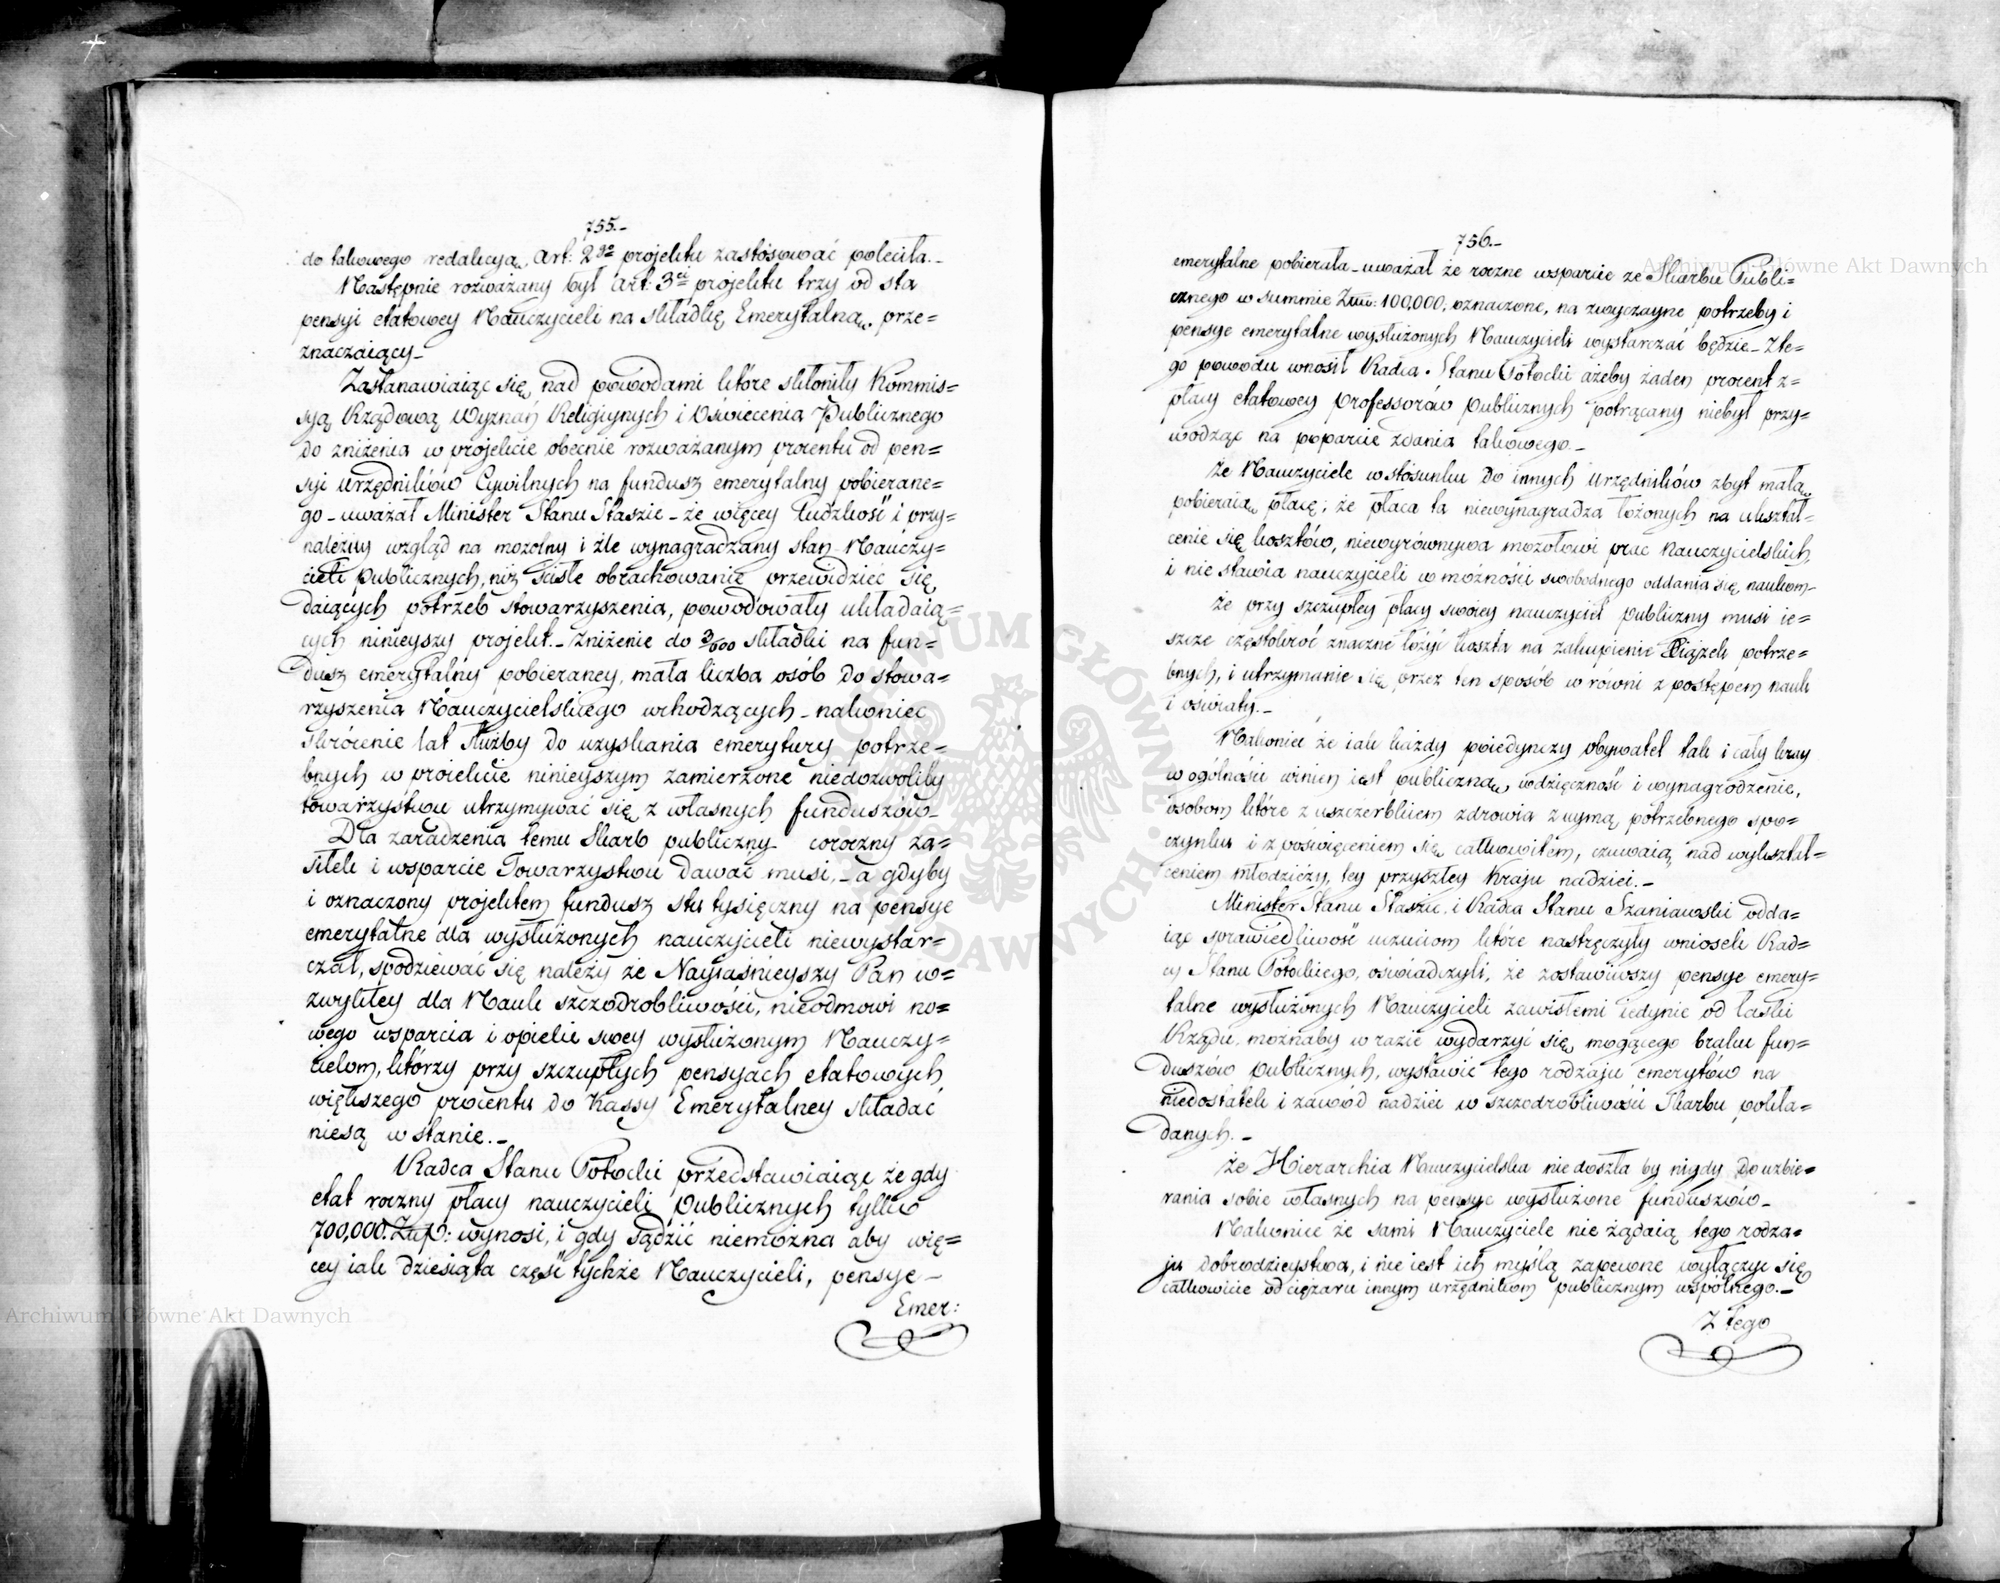 755.-
do takowego redakcyą, Art: 2go projektu zastósować poleciła.-
Następnie rozważany był Art: 3ci projektu trzy od sta
pensyi etatowey Nauczycieli na składkę Emerytalną, prze=
znaczaiący-
Zastanawiaiąc się nad powodami które skłoniły Kommis=
syą Rządową Wyznań Religiynych i Oświecenia Publicznego
do zniżenia w projekcie obecnie rozważanym procentu od pen=
syi urzędników Cywilnych na fundusz emerytalny pobierane=
go - uważał Minister Stanu Staszic - że więcey ludzkość i przy=
należny wzgląd na mozolny i źle wynagradzany stan Nauczy=
cieli publicznych, niż ściśle obrachowanie przewidzieć się
daiących potrzeb stowarzyszenia, powodowały układaią=
cych ninieyszy projekt.- Zniżenie do 3/600 składki na fun=
dusz emerytalny pobieraney, mała liczba osób do stowa=
rzyszenia Nauczycielskiego wchodzących - nakoniec
skrócenie lat służby do uzyskania emerytury potrze=
bnych w proiekcie ninieyszym zamierzone niedozwoliły
towarzystwu utrzymywać się z własnych funduszów-
Dla zaradzenia temu Skarb publiczny coroczny za=
siłek i wsparcie Towarzystwu dawać musi,- a gdyby
i oznaczony projektem fundusz stu tysięczny na pensye
emerytalne dla wysłużonych nauczycieli niewystar=
czał, spodziewać się należy że Nayiaśnieyszy Pan w=
zwykłey dla Nauk szczodrobliwości, nieodmowi no=
wego wsparcia i opieki swey wysłużonym Nauczy=
cielom, którzy przy szczupłych pensyach etatowych
większego procentu do Kassy Emerytalney składać
niesą w stanie.-
Radca Stanu Potocki przedstawiaiąc że gdy
etat roczny płacy nauczycieli Publicznych tylko
700,000. Złp: wynosi, i gdy sądzić niemożna aby wię=
cey iak dziesiąta część tychże Nauczycieli, pensye-
Emer:
756.-
emerytalne pobierała - uważał że roczne wsparcie ze Skarbu Publi=
cznego w summie 100,000, oznaczone, na zwyczayne potrzeby i
pensye emerytalne wysłużonych Nauczycieli wystarczać będzie - Z te=
go powodu wnosił Radca Stanu Potocki ażeby żaden procent z=
płacy etatowey Professorów publicznych potrącany niebył przy=
wodząc na poparcie zdania takowego.-
że Nauczyciele w stósunku do innych Urzędników zbyt małą
pobieraią płacę; że płaca ta niewynagradza łożonych na ukształ=
cenie się kosztów, niewyrównywa mozołowi prac Nauczycielskich,
i nie stawia nauczycieli w możności swobodnego oddania się naukom-
że przy szczupłey płacy swoiey nauczyciel publiczny musi ie=
szcze częstokroć znaczne łożyć koszta na zakupienie Xiążek potrze=
bnych, i utrzymanie się przez ten sposób w równi z postępem nauk
i oświaty.-
Nakoniec że iak każdy poiedynczy obywatel tak i cały kray
w ogólności winien iest publiczną, wdzięczność i wynagrodzenie,
osobom które z uszczerbkiem zdrowia z uymą potrzebnego spo=
czynku i z poświęceniem się całkowitem, czuwaią nad wykształ=
ceniem młodzieży, tey przyszłey Kraju nadziei.-
Minister Stanu Staszic, i Radca Stanu Szaniawski odda=
iąc sprawiedliwość uczuciom które nastręczyły wniosek Rad=
cy Stanu Potockiego, oświadczyli, że zostawiwszy pensye emery=
talne wysłużonych Nauczycieli zawisłemi iedynie od łaski
Rządu, możnaby w razie wydarzyć się mogącego braku fun=
duszów publicznych, wystawić tego rodzaju emerytów na
niedostatek i zawód nadziei w szczodrobliwości Skarbu pokła=
danych.-
że Hierarchia Nauczycielska nie doszła by nigdy do uzbie=
rania sobie własnych na pensye wysłużone funduszów-
Nakoniec że sami Nauczyciele nie żądaią tego rodza=
ju dobrodzieystwa, i nie iest ich myślą zapewne wyłączyć się
całkowicie od ciężaru innym urzędnikom publicznym wspólnego.-
Z tego
Archiwum Główne Akt Dawnych
Archiwum Główne Akt Dawnych
ARCHIWUM GŁÓWNE AKT DAWNYCH